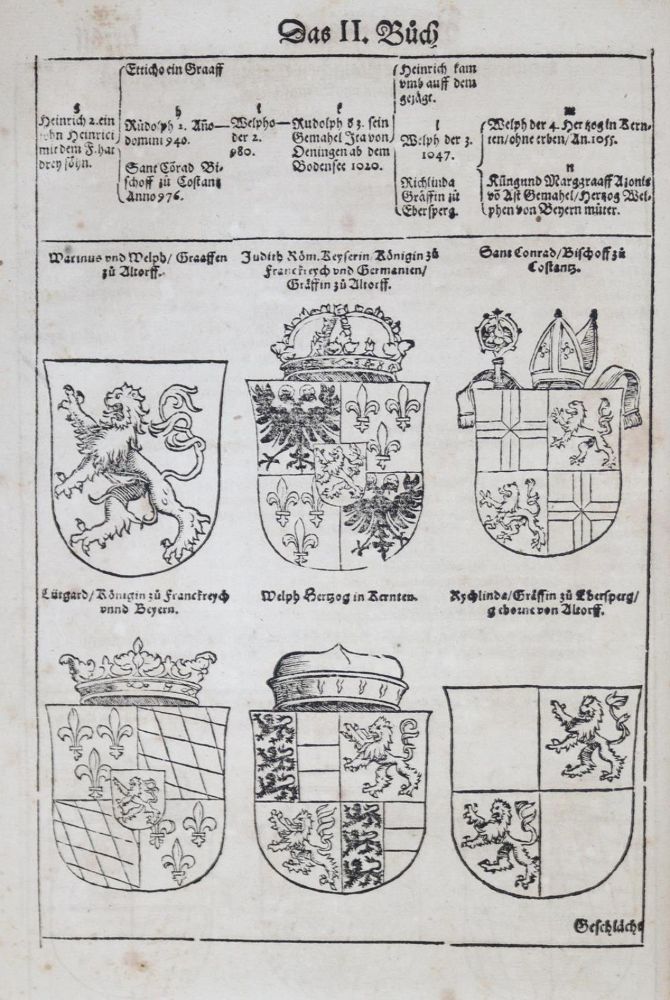 Das II. Bůch
g
Heinrich 2. ein
sohn Heinrici
mit dem F. hat
drey sőhn.
Etticho ein Graaff
h
Růdolph 1. Año
domini 940.
Sant Cõrad Bi-
schoff zů Costantz
Anno 976.
i
Welpho
der 2.
980.
k
Rudolph d 3. sein
Gemahel Ita von
Oeningen ab dem
Bodensee 1020.
Heinrich kam
vmb auff dem
gejägt.
l
Welph der 3.
1047.
Richlinda
Gräffin zů
Ebersperg.
m
Welph der 4. Hertzog in Kern-
ten/ ohne erben/ An. 1055.
n
Küngund Marggraaff Azonis
võ Ast Gemahel/ Hertzog Wel-
phen von Beyern můter.
Warinus vnd Welph/ Graaffen
zů Altorff.
Judith Rőm. Keyserin/ Kőnigin zů
Franckreych vnd Germanien/
Gräffin zů Altorff.
Sant Conrad/ Bischoff zů
Costantz.
Lütgard/ Kőnigin zů Franckreych
vnnd Beyern.
Welph Hertzog in Kernten.
Rychlinda/ Gräffin zů Ebersperg/
geborne von Altorff.
Geschlächt